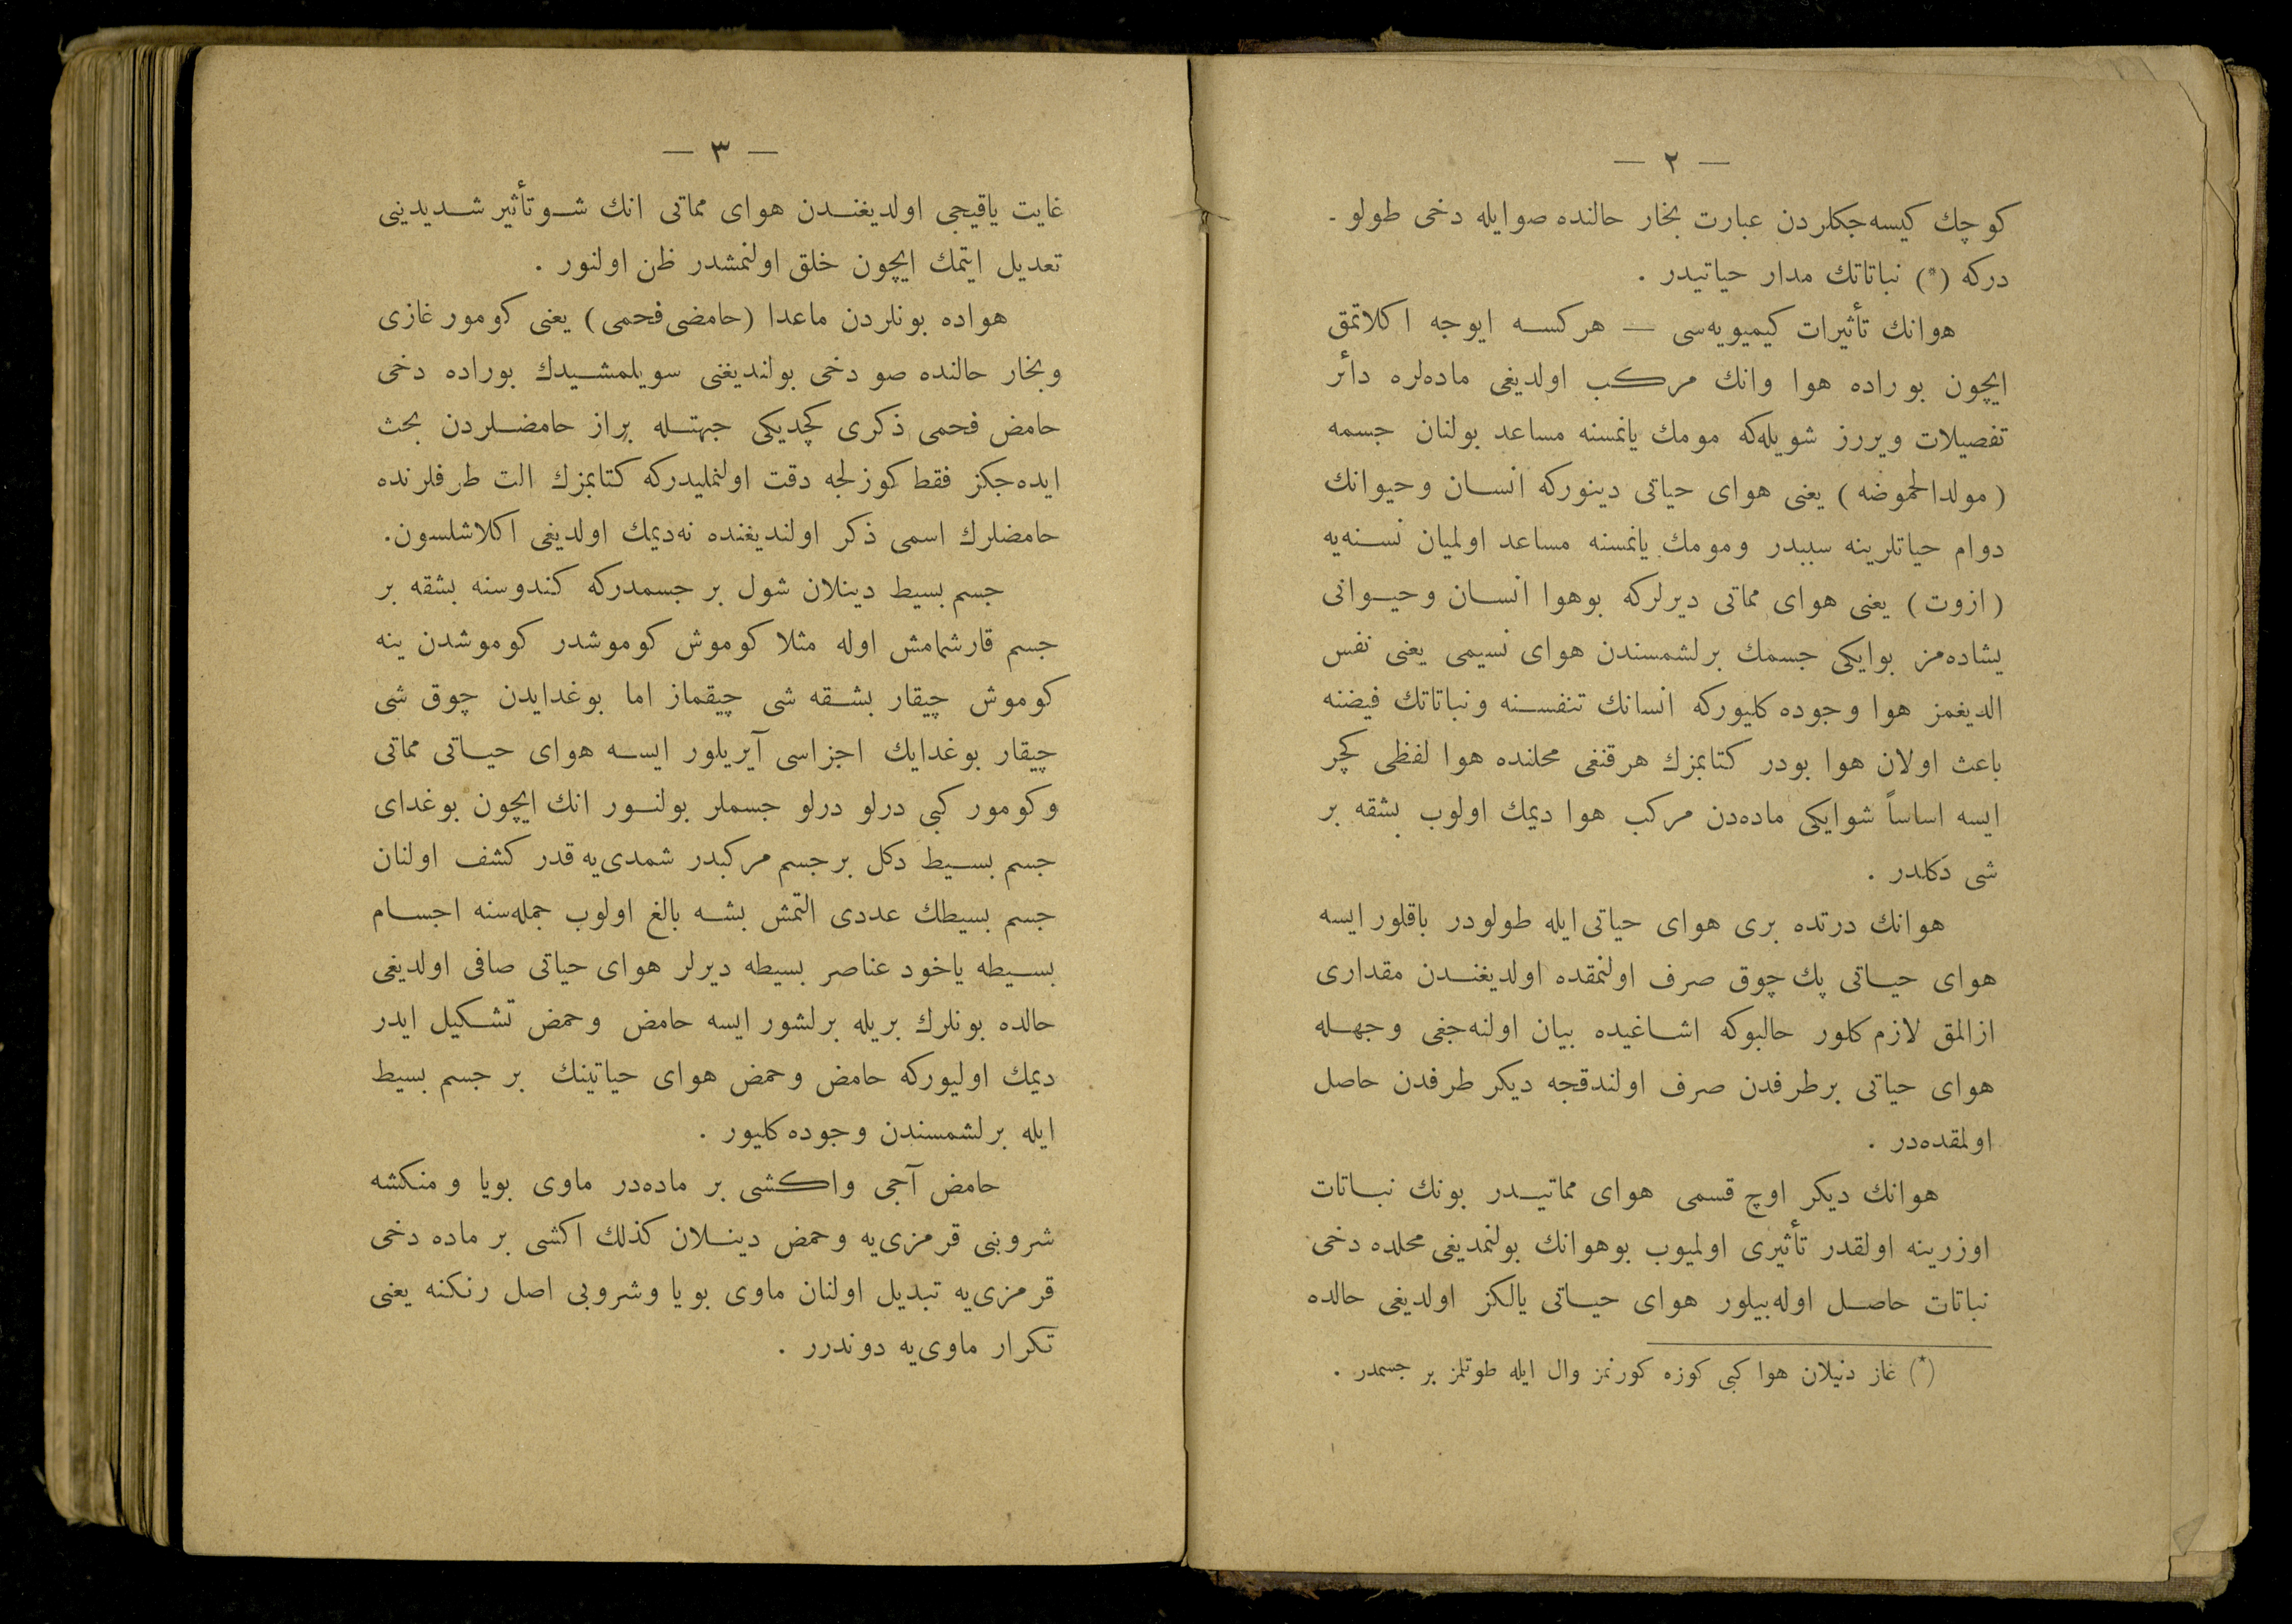 — ٢ —
كوچك كيسه‌جكلردن عبارت بخار حالنده صوايله دخى طولو ـ
دركه (*) نباتاتك مدار حياتيدر .
هوانك تأثيرات كيميويه‌سى — هركسه ايوجه اكلاتمق
ايچون بوراده هوا وانك مركب اولديغى ماده‌لره دأئر
تفصيلات ويررز شويله‌كه مومك يانمسنه مساعد بولنان جسمه
(مولدالحموضه) يعنى هواى حياتى دينوركه انسان وحيوانك
دوام حياتلرينه سببدر ومومك يانمسنه مساعد اولميان نسنه‌يه
(ازوت) يعنى هواى مماتى ديرلركه بوهوا انسان وحيوانى
يشاده‌مز بوايكى جسمك برلشمسندن هواى نسيمى يعنى نفس
الديغمز هوا وجوده كليوركه انسانك تنفسنه ونباتاتك فيضنه
باعث اولان هوا بودر كتابمزك هرقنغى محلنده هوا لفظى كچر
ايسه اساساً شوايكى ماده‌دن مركب هوا ديمك اولوب بشقه بر
شى دكلدر .
هوانك درتده برى هواى حياتى ايله طولودر باقلور ايسه
هواى حياتى پك چوق صرف اولنمقده اولديغندن مقدارى
ازالمق لازم كلور حالبوكه اشاغيده بيان اولنه‌جغى وجهله
هواى حياتى برطرفدن صرف اولندقجه ديكر طرفدن حاصل
اولمقده‌در .
هوانك ديكر اوچ قسمى هواى مماتيدر بونك نباتات
اوزرينه اولقدر تأثيرى اولميوب بوهوانك بولنمديغى محلده دخى
نباتات حاصل اوله‌بيلور هواى حياتى يالكز اولديغى حالده
(*) غاز دنيلان هوا كبى كوزه كورنمز وال ايله طوتلمز بر جسمدر .
— ٣ —
غايت ياقيجى اولديغندن هواى مماتى انك شوتأثير شديدينى
تعديل ايتمك ايچون خلق اولنمشدر ظن اولنور .
هواده بونلردن ماعدا (حامضى فحمى) يعنى كومور غازى
وبخار حالنده صو دخى بولنديغنى سويلمشيدك بوراده دخى
حامض فحمى ذكرى كچديكى جهتله براز حامضلردن بحث
ايده‌جكز فقط كوزلجه دقت اولنمليدركه كتابمزك الت طرفلرنده
حامضلرك اسمى ذكر اولنديغنده نه‌ديمك اولديغى اكلاشلسون.
جسم بسيط دينلان شول بر جسمدركه كندوسنه بشقه بر
جسم قارشمامش اوله مثلا كوموش كوموشدر كوموشدن ينه
كوموش چيقار بشقه شى چيقماز اما بوغدايدن چوق شى
چيقار بوغدايك اجزاسى آيريلور ايسه هواى حياتى مماتى
وكومور كبى درلو درلو جسملر بولنور انك ايچون بوغداى
جسم بسيط دكل برجسم مركبدر شمدى‌يه قدر كشف اولنان
جسم بسيطك عددى التمش بشه بالغ اولوب جمله‌سنه اجسام
بسيطه ياخود عناصر بسيطه ديرلر هواى حياتى صافى اولديغى
حالده بونلرك بريله برلشور ايسه حامض وحمض تشكيل ايدر
ديمك اوليوركه حامض وحمض هواى حياتينك بر جسم بسيط
ايله برلشمسندن وجوده كليور .
حامض آجى واكشى بر ماده‌در ماوى بويا و منكشه
شروبنى قرمزى‌يه وحمض دينلان كذلك اكشى بر ماده دخى
قرمزى‌يه تبديل اولنان ماوى بويا وشروبى اصل رنكنه يعنى
تكرار ماوى‌يه دوندرر .